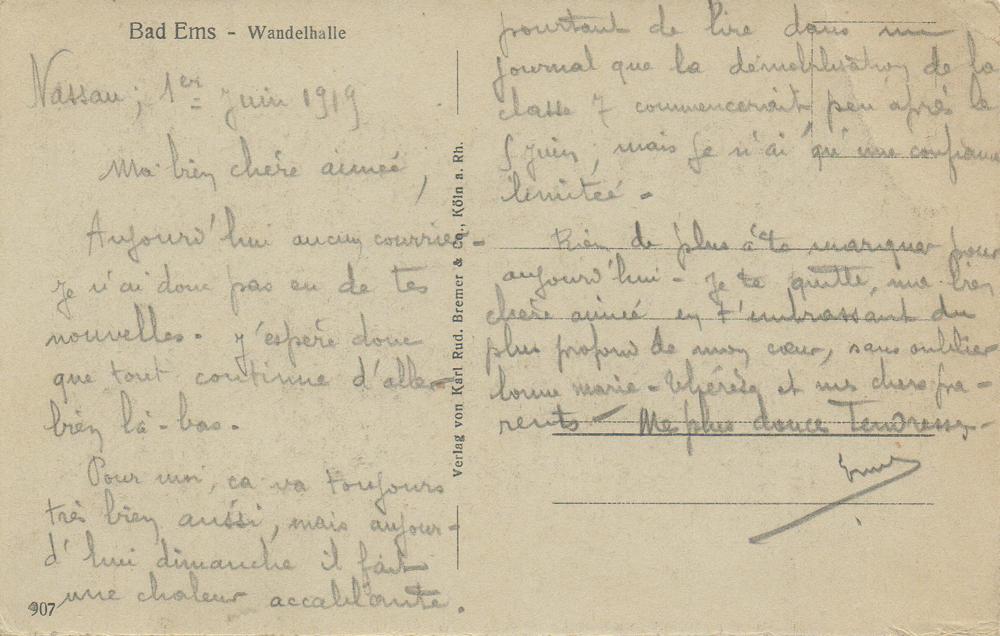 Bad Ems - Wandelhalle
Nassau; 1er Juin 1919
Ma bien chère aimée,
Aujourd'hui aucun courrier-
Je n'ai donc pas eu de tes
nouvelles. J'espère donc
que tout continue d'aller
bien là-bas.
Pour moi, ça va toujours
très bien aussi, mais aujour-
d'hui dimanche il fait
une chaleur accablante.
907
Verlag von Karl Rud. Bremer & Co., Köln a. Rh.
pourtant de lire dans un
journal que la démobilisation de la
classe 7 commencerait peu après le
5 Juin, mais je n'ai qu'une confiance
limitée-
Rien de plus à te marquer pour
aujourd'hui- Je te quitte, ma bien
chère aimée en t'embrassant du
plus profond de mon cœur, sans oublier
bonne Marie-Thérèse et mes chers pa-
rents- Me plus douce Tendresse-